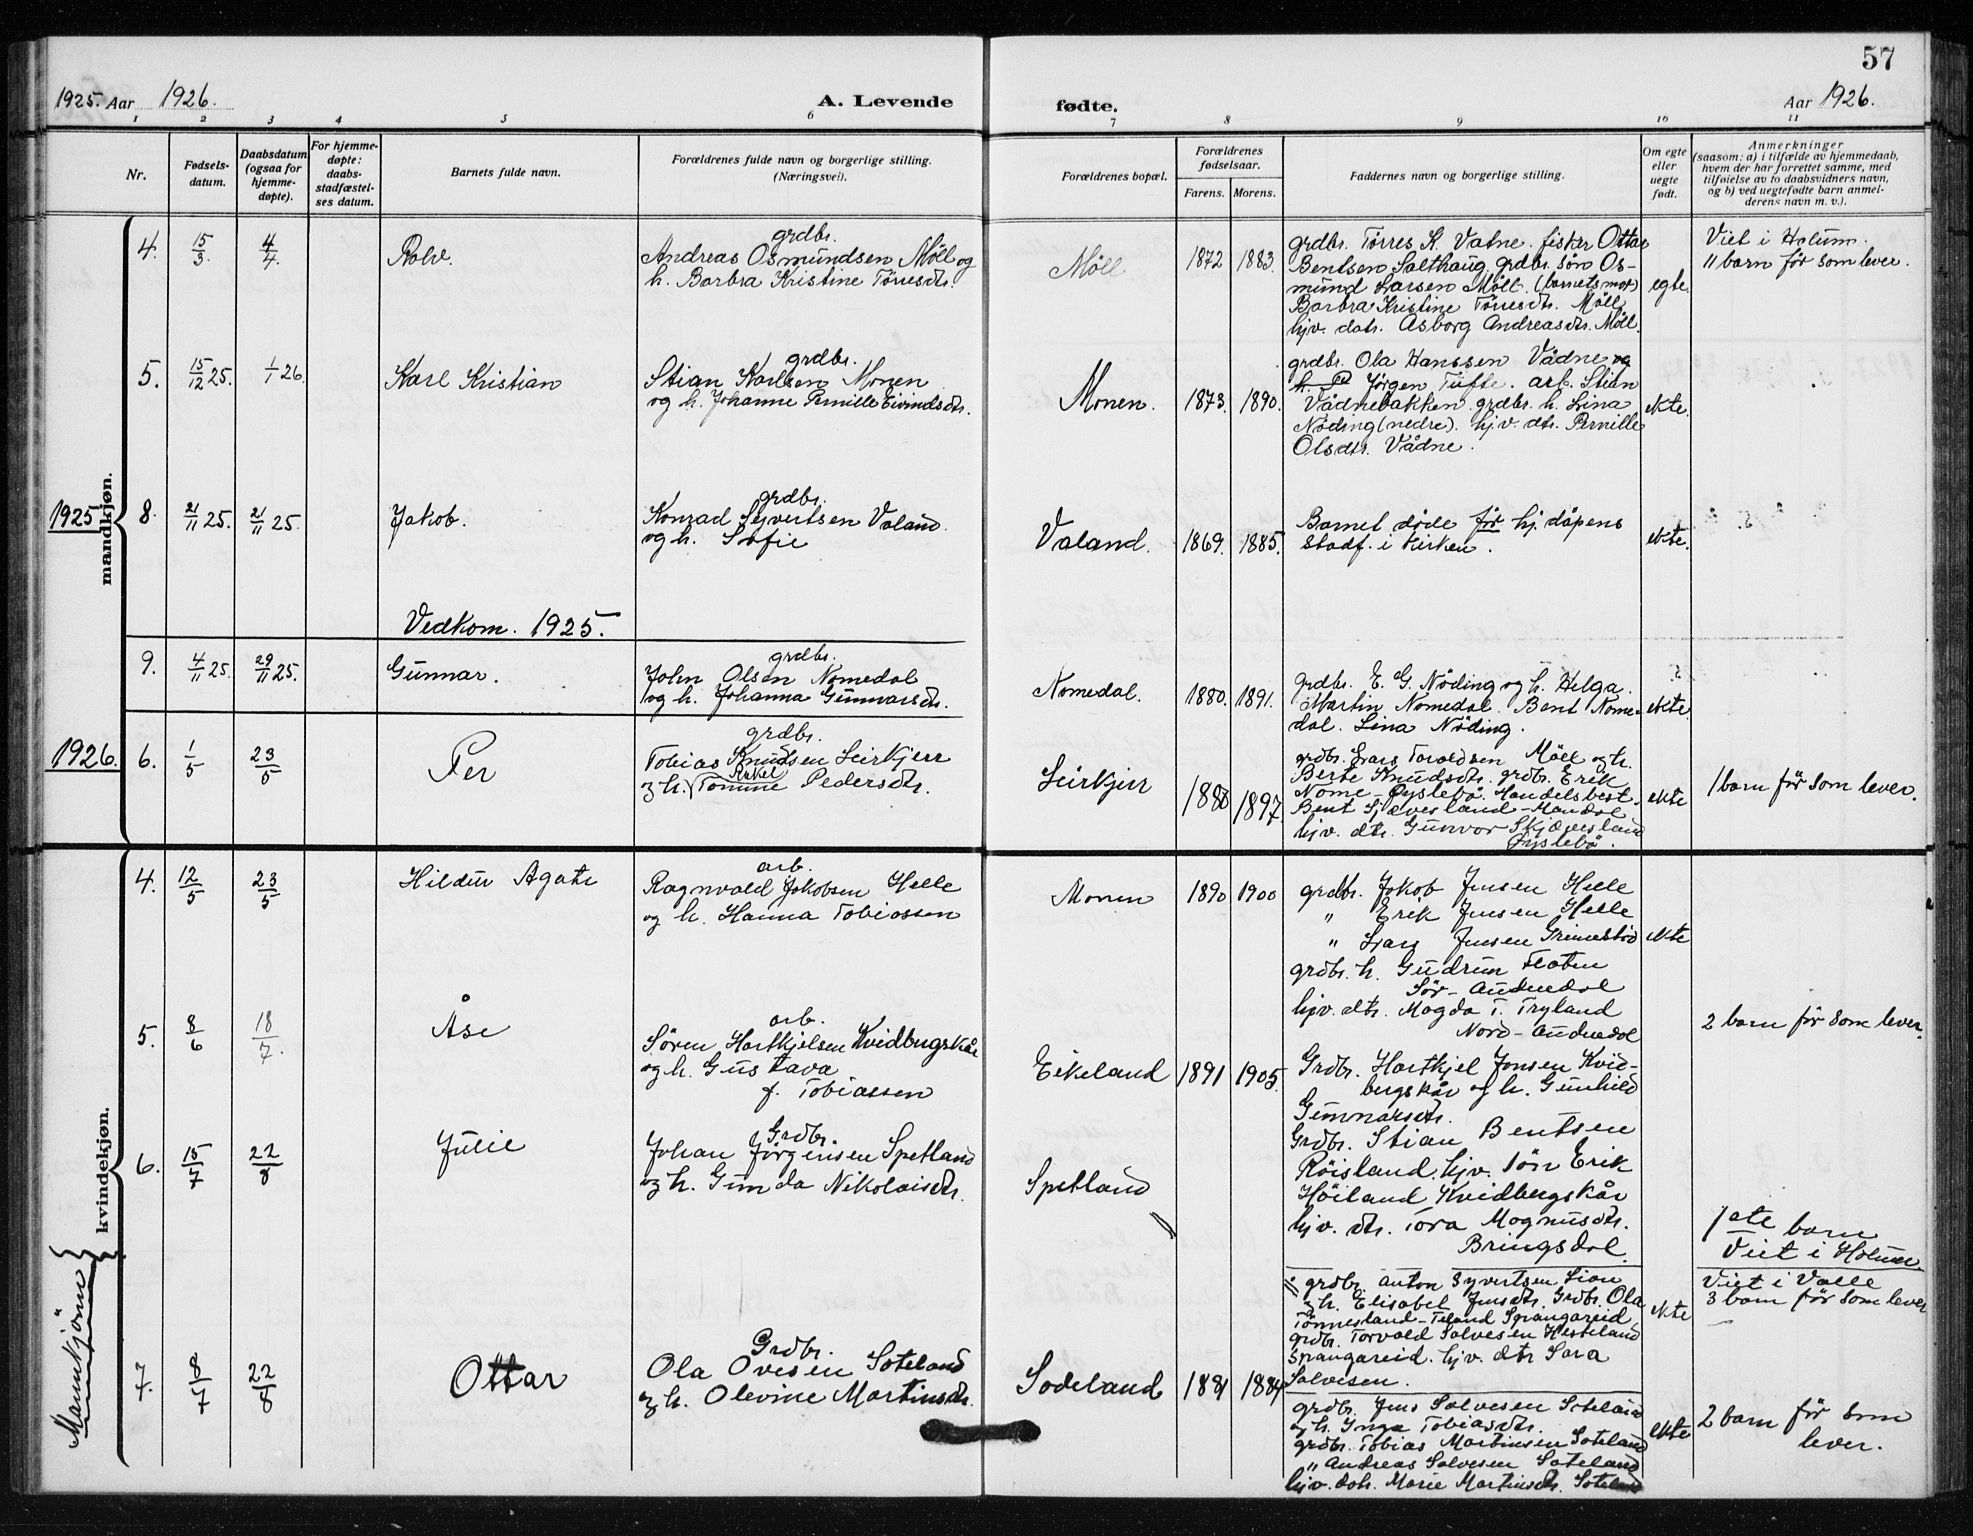 57
1925. Aar 1926.
A. Levende
fødte.
Aar 1926.
1 2 3 4 5 6 7 8 9 10 11
Nr.
Fødsels-
datum.
Daabsdatum
(ogsaa for
hjemme-
døpte).
For hjemme-
døpte:
daabs-
stadfæstel-
ses datum.
Barnets fulde navn.
Forældrenes fulde navn og borgerlige stilling.
(Næringsvei).
Forældrenes bopæl.
Forældrenes
fødselsaar.
Farens. Morens.
Faddernes navn og borgerlige stilling.
Om egte
eller
uegte
født.
Anmerkninger
(saasom: a) i tilfælde av hjemmedaab,
hvem der har forrettet samme, med
tilføielse av to daabsvidners navn,
og b) ved uegtefødte barn anmel-
derens navn m. v.).
1925
mandkjøn.
4. 15/3. 4/4. Rolv.
grdbr.
Andreas Osmundsen Möll og
h. Barbra Kristine Törresdtr.
Möll 1872 1883.
grdbr. Törres K. Vatne. fisker Ottar
Bentsen Salthaug grdbr. sön Os-
mund Larsen Möll. (barnets mor)
Barbra Kristine Törresdtr. Möll
hjv. datr. Asborg Andreasdtr. Möll.
egte.
Viet i Holum.
11 barn før som lever.
5. 15/12 25. 1/1 26. Karl Kristian
grdbr.
Stian Karlsen Monen
og h. Johanne Pernille Eivindsdtr.
Monen. 1873. 1890.
grdbr. Ola Hanssen Vådne og
Jörgen Tufte. arb. Stian
Vådnebakken. grdbr. h. Lina
Nöding (nedre). hjv. dtr. Pernille
Olsdtr. Vådne.
ekte.
8. 21/11 25. 21/11 25. Jakob.
grdbr.
Konrad Syvertsen Valand.
og h. Sofie
Valand. 1869. 1885.
Barnet döde för hj. dåpens
stadf. i kirken.
ekte.
Vedkom. 1925.
9. 4/11 25. 29/11 25. Gunnar.
grdbr.
John Olsen Nomedal
og h. Johanna Gunnarsdtr.
Nomedal. 1880. 1891.
grdbr. E. G. Nöding og h. Helga.
Martin Nomedal. Bent Nome-
dal. Lina Nöding.
ekte.
1926.
6. 1/5 23/5 Per
grdbr.
Tobias Knudsen Leirkjerr
og h. Tomine Pedersdtr.
Leirkjerr 1897
grdbr. Lars Torvaldsen Möll og h.
Berte Knudsdtr. grdbr. Erik
Nome – Öyslebö. Handelsbest.
Bent Skjævesland – Mandal
hjv. dtr. Gunvor Skjævesland
Öyslebö.
ekte
1 barn för som lever.
kvindekjøn.
4. 12/5 23/5 Hildur Agate
arb.
Ragnvald Jakobsen Helle
og h. Hanna Tobiassen
Monen 1890 1900
grdbr. Jakob Jensen Helle
" Erik Jensen Helle
" Lars Jensen Grimestöd
grdbr. h. Gudrun Floten
Sör-Audnedal
hjv. dtr. Magda T. Tryland
Nord-Audnedal
ekte
5. 8/6 18/7. Åse
arb.
Sören Hartkjelsen Kvidbergskår
og h. Gustava
f. Tobiassen
Eikeland 1891 1905.
Grdbr. Hartkjel Jonsen Kvid-
bergskår og h. Gunhild
Gunnarsdtr.
Grdbr. Stian Bentsen
Röisland. hjv. sön Erik
Höiland Kvidbergskår
hjv. dtr. Tora Magnusdtr.
Bringsdal.
2 barn för som lever.
6. 15/7 22/8 Julie
Grdbr.
Johan Jörgensen Spetland
og h. Gunda Nikolaisdtr.
Spetland
1ste barn
Viet i Holum.
grdbr. Anton Syvertsen Lian
og h. Elisabet Jensdtr. Grdbr. Ola
Tönnesland – Spangareid
grdbr. Torvald Salvesen Hesteland
Spangareid. hjv. dtr Sara
Salvesen.
ekte
Viet i Valle
3 barn för som lever
Mannkjönn
7. 8/7 22/8 Ottar
Grdbr.
Ola Ovesen Soteland
og h. Olevine Martinsdtr.
Sodeland 1881 1884
grdbr. Jens Salvesen Soteland
og h. Inga Tobiasdtr.
grdbr. Tobias Martinsen Soteland
" Andreas Salvesen Soteland
hjv. dotr. Marie Martinsdtr. Soteland
ekte
2 barn för som
lever.